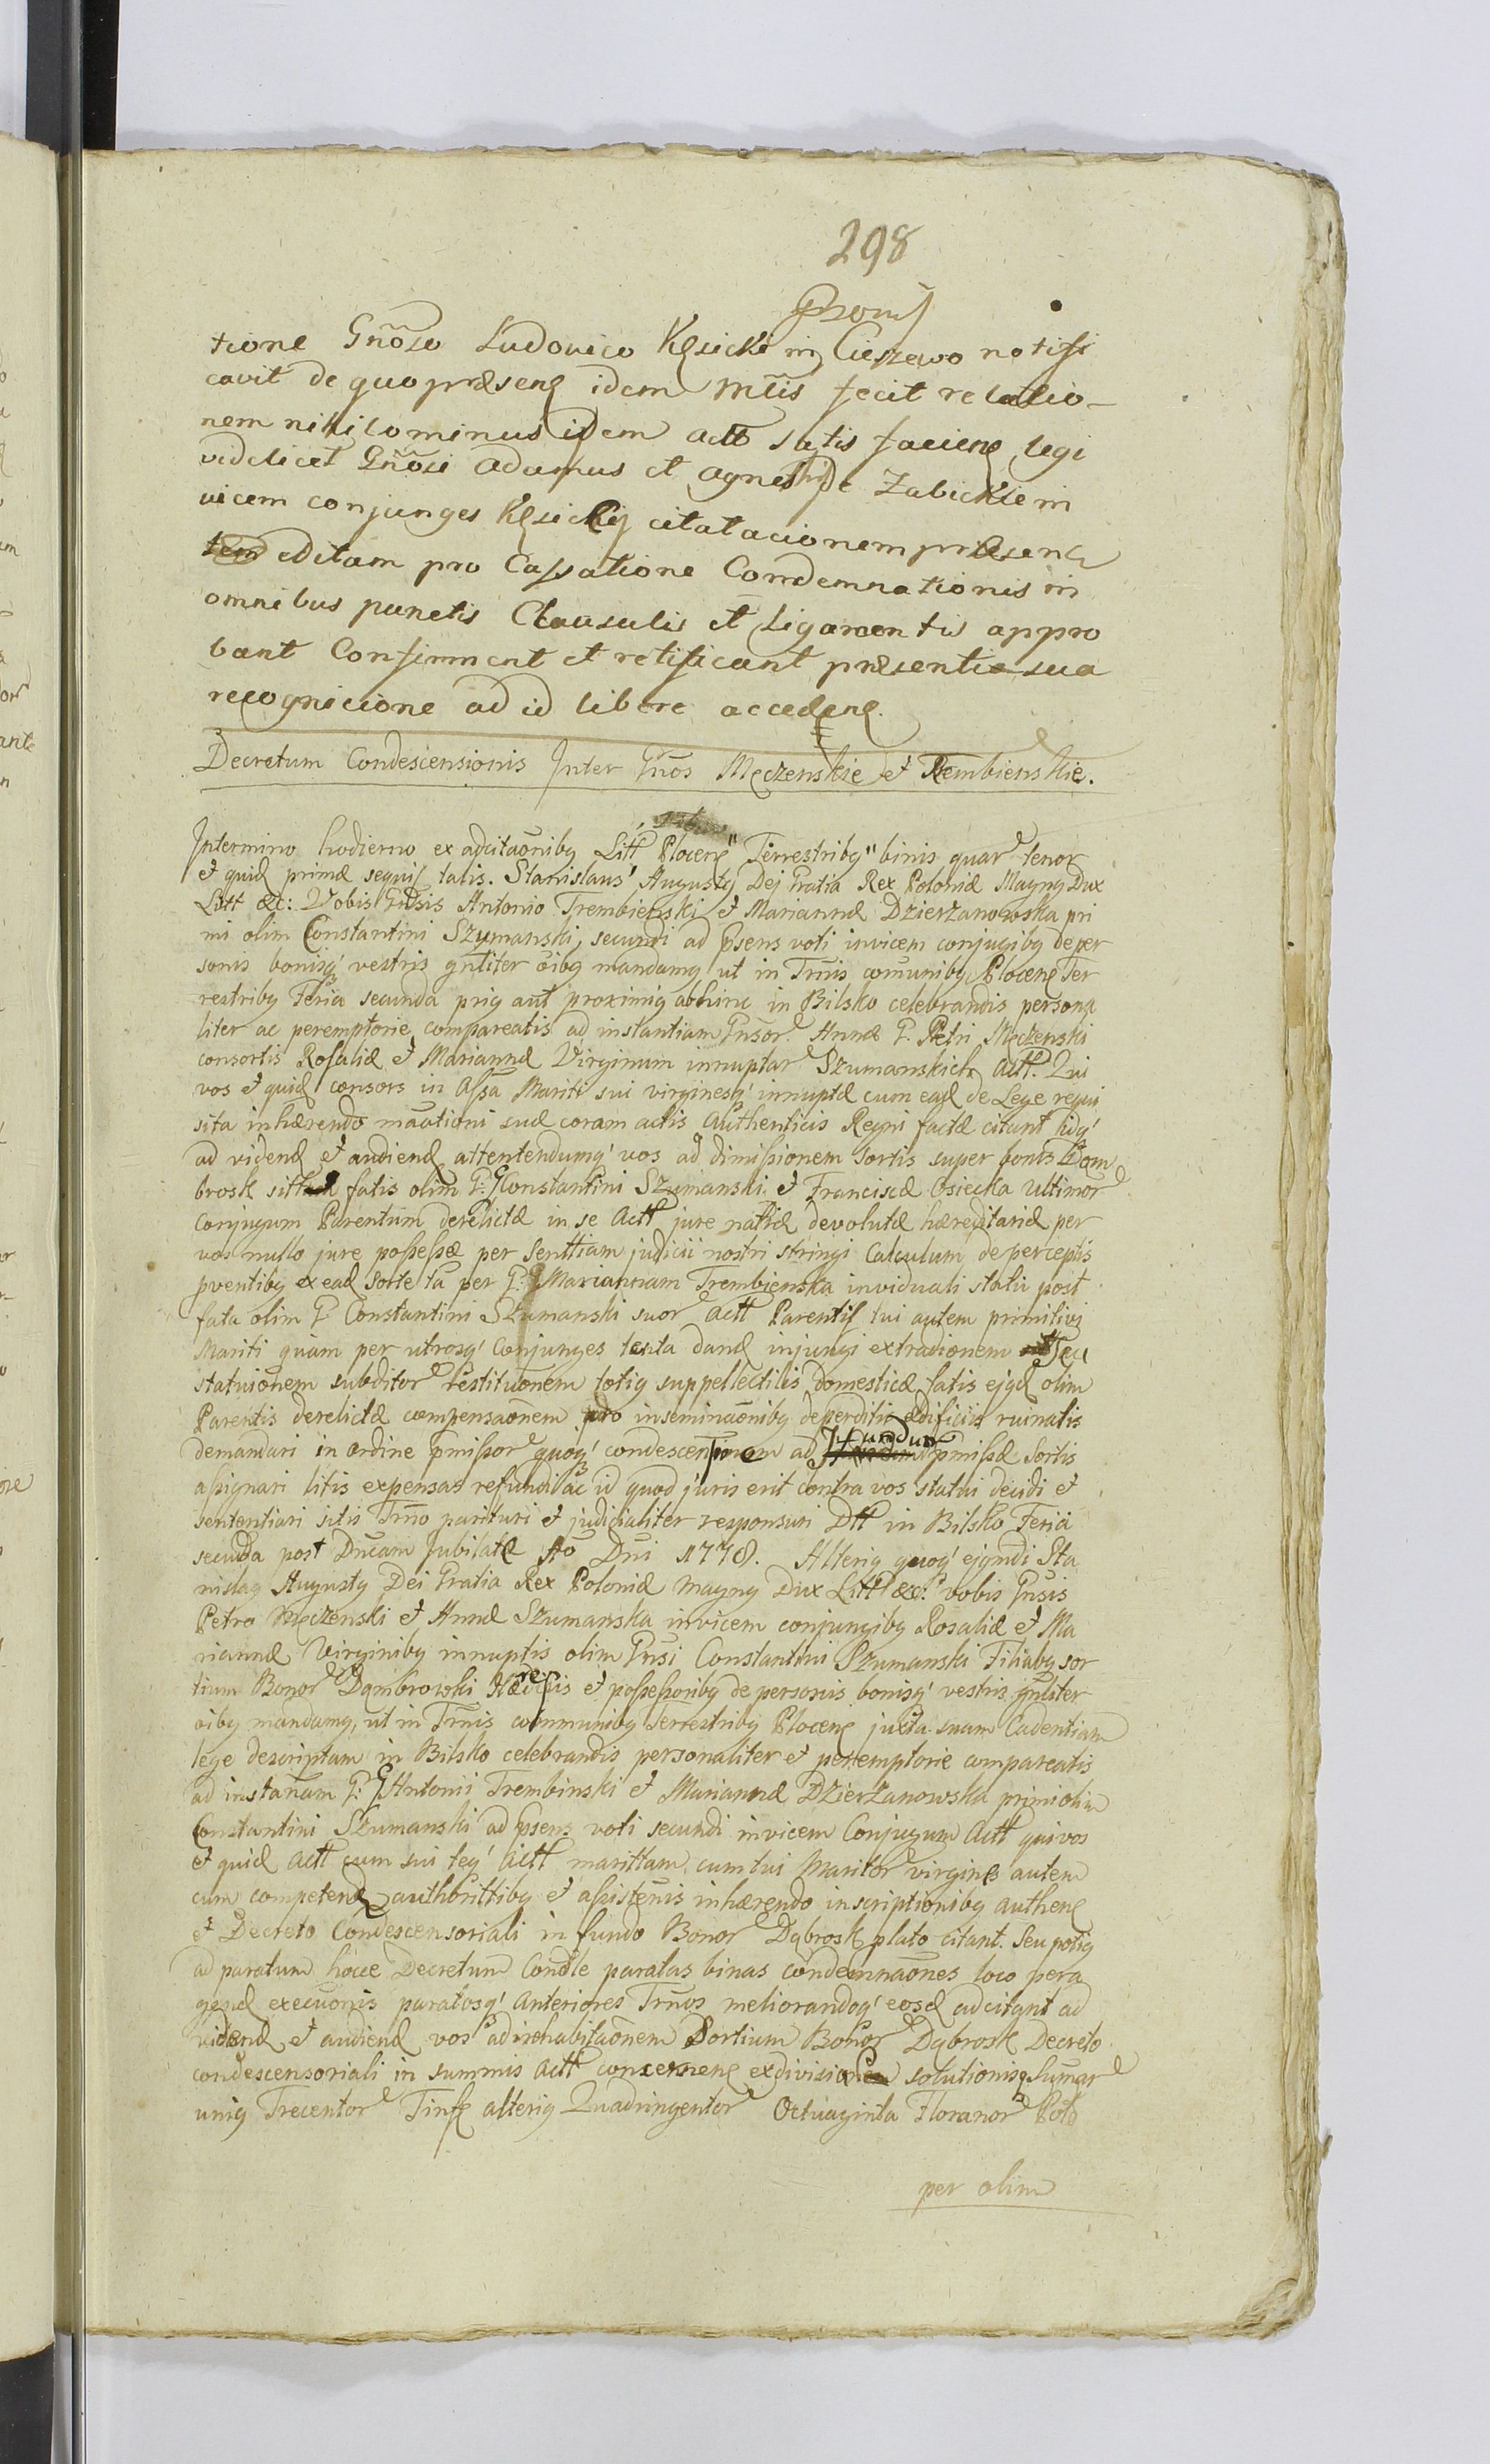 298
tione Gnõso Ludovico Kęsicki in Cieszewo notifi
cavit de quo præsens idem Mtis fecit relatio-
nem nihilominus idem actt satis faciens legi
videlicet Gnõsi Adamus et Agnes de Zabickie in
vicem conjunges Kęsickij citatacionem præsen
tem editam pro Cassatione Condemnationis in
omnibus punctis Clausulis et Ligamentis appro
bant Confirment et retificant præsentie sua
recognicione ad id libere accedens.
Decretum Condescensionis Inter Gnos Męczenskie et Trembienskie.
Intermino hodierno ex adcitaõnibq Litt Plocens Terrestribq binis quar tenor
et quid primæ sequit talis. Stanislaus Augustq Dej Gratia Rex Poloniæ Magnq Dux
Litt &c: Vobis Gnsis Antonio Trembienski et Mariannæ Dzierzanowska pri
mi olim Constantini Szymanski, secundi ad psens voti invicem conjugibq de per
sonis bonisq vestris gnliter oibq mandamq ut in Trnis comunibq Plocens Ter
restribq Feria secunda priq aut proximiq abhinc in Bilsko celebrandis persona
liter ac peremptorie compareatis ad instantiam Gnsor Annæ G. Petri Męczenski
consortis Rosaliæ et Mariannæ Virginum innuptar Szumanskich Actt. Qui
vos et quid consors in Assa Mariti sui virginesq innuptæ cum ead de Lege requi
sita inhærendo maõtioni suæ coram actis Authenticis Regni factæ citant hicq
ad videnđ et audienđ attentendumq vos ad dimissionem sortis super bonis Dom
brosk fatis olim G. G Constantini Szumanski et Franciscæ Osiecka ultimor
Conjugum Parentum derelictæ in se Actt jure natliæ devolutæ hæreditariæ per
vos nullo jure possessæ per Senttiam judicii nostri stringi Calculum de perceptis
pventibq ex ead Sorte tã per G. G Mariannam Trembienska inviduali statu post
fata olim G Constantini Szumanski suor Actt Parentis tui autem primitivi
Mariti quam per utrosq Conjunges tenta danđ injungi extradionem seu
statuionem subditor restituonem totiq suppellectilis domesticæ fatis ejqd olim
Parentis derelictæ compensaonem pro inseminaonibq deperditis ædificiis ruinatis
demandari in ordine pmissor quoq condescensionem ad Fundum pmissæ Sortis
assignari litis expensas refundi ac id quod juris erit contra vos statui decidi et
sententiari sitis Trno parituri et judicialiter responsuri Dtt in Bilsko Feria
secunda post Dncam Jubilate Ao Dni 1778. Alteriq quoq ejqmdi Sta
nislaq Augustq Dei Gratia Rex Poloniæ Magnq Dux Litt &c: vobis Gnsis
Petro Męczenski et Annæ Szumanska invicem conjungibq Rosaliæ et Ma
riannæ Virginibq innuptis olim Gnsi Constantini Szumanski Filiabq sor
tium Bonor Dąmbrowski Hæredis et possessoribq de personis bonisq vestris gnliter
oibq mandamq, ut in Trnis communibq Terrestribq Plocens juxta suam Cadentiam
lege descriptam in Bilsko celebrandis personaliter et peremptorie compareatis
ad instanam G. G Antonii Trembinski et Mariannæ Dzierzanowska primi olim
Constantini Szumanski ad psens voti secundi invicem Conjugum Actt qui vos
et quid Actt cum sui teq Actt marittam cum tui Maritor virgines autem
cum competend authorittibq et assistenis inhærendo inscriptionibq authens
et Decreto Condescensoriali in fundo Bonor Dąbrosk plato citant. Seu potiq
ad paratum hocce Decretum Condle paratas binas condemnaõnes loco pera
gend execuonis paratosq Anteriores Trnos meliorandoq eosd adcitant ad
videnđ et audienđ vos ad inhabitaõnem Sortium Bonor Dąbrosk Decreto
condescensoriali in summis Actt concernens exdivisione solutionisq Sumar
uniq Trecentor Tinf alteriq Quadringentor Octuaginta Floranor Polo
per olim